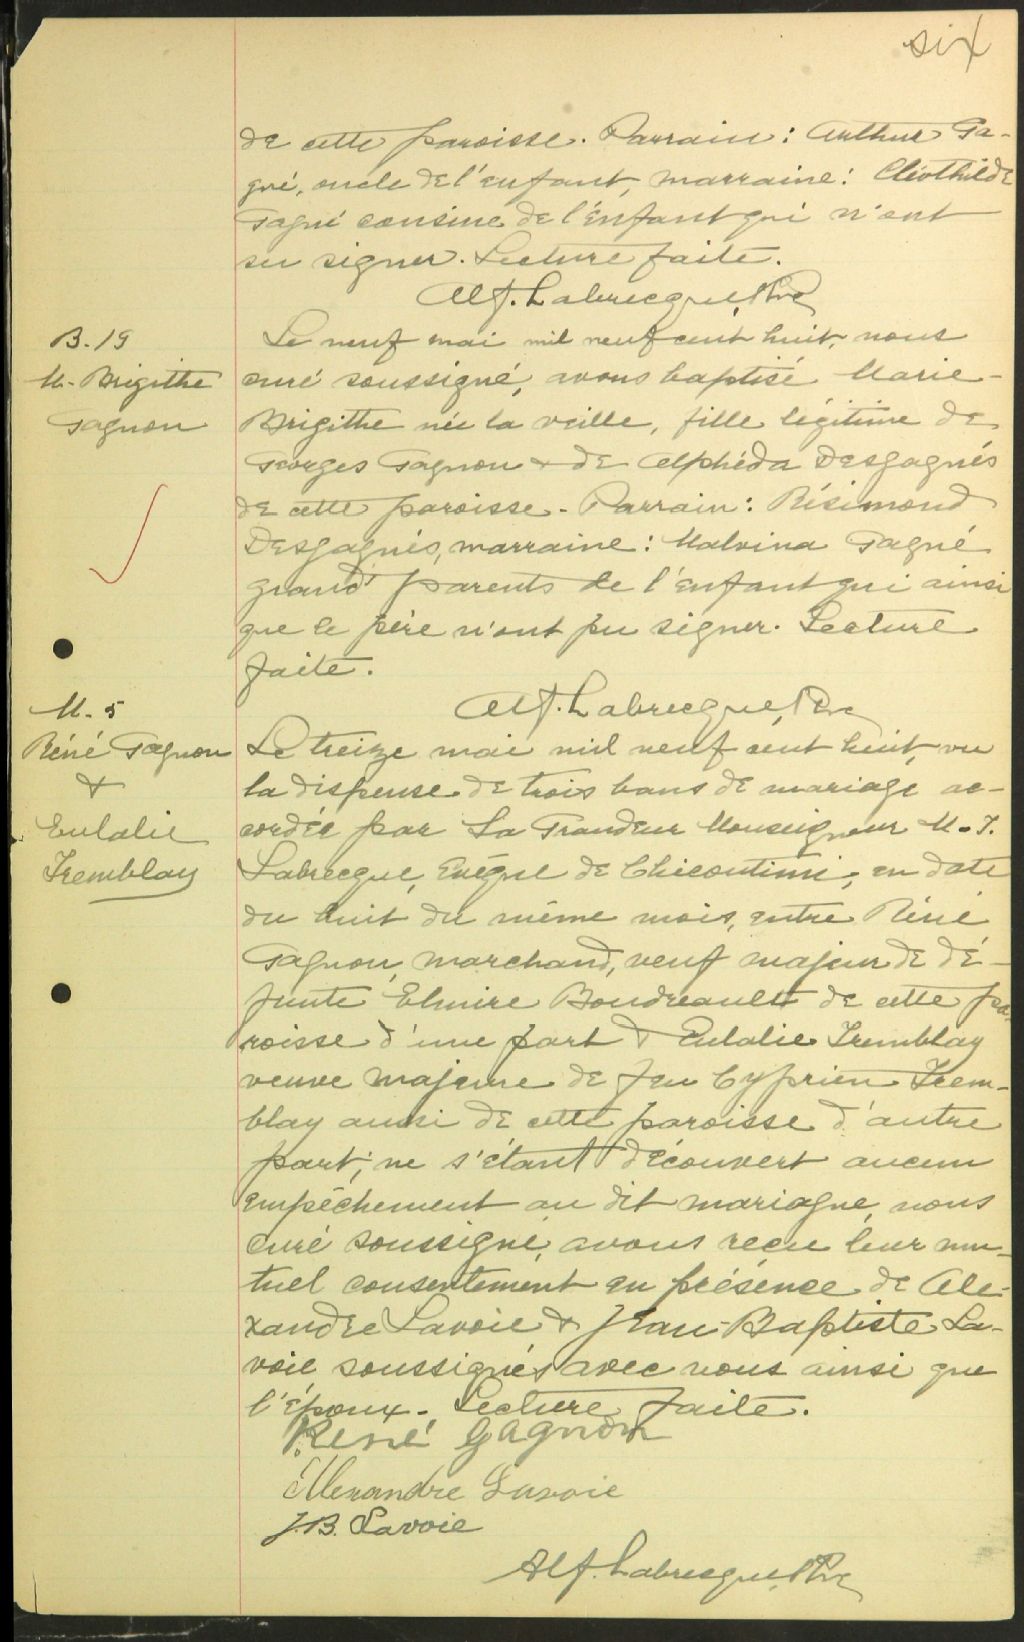 six
de cette paroisse. Parrain: Arthur Ga-
gné, oncle de l'enfant, marraine: Cléothilde
Gagné cousine de l'enfant qui n'ont
su signer. Lecture faite.
Alf. Labrecque, Ptre
B. 19
M. Brigithe
Gagnon
Le neuf mai mil neuf cent huit, nous
curé soussigné, avons baptisé Marie-
Brigithe née la veille, fille légitime de
Georges Gagnon & de Alphéda Desgagnés
de cette paroisse. Parrain: Résimond
Desgagnés, marraine: Malvina Gagné
grand' parents de l'enfant qui ainsi
que le père n'ont pu signer. Lecture
faite.
Alf. Labrecque, Ptre
M. 5
Réné Gagnon
&
Eulalie
Tremblay
Le treize mai mil neuf cent huit, vu
la dispense de trois bans de mariage ac-
cordée par Sa Grandeur Monseigneur M. T.
Labrecque, Evêque de Chicoutimi, en date
du huit du même mois, entre Réné
Gagnon, marchand, veuf majeur de dé-
funte Elmire Boudreault de cette pa-
roisse d'une part & Eulalie Tremblay
veuve majeure de feu Cyprien Trem-
blay aussi de cette paroisse d'autre
part; ne s'étant découvert aucun
empêchement au dit mariagne, nous
curé soussigné, avons reçu leur mu-
tuel consentement en présence de Ale-
xandre Lavoie & Jean-Baptiste La-
voie soussignés avec nous ainsi que
l'époux. Lecture faite.
René Gagnon
Alexandre Lavoie
J.B. Lavoie
Alf. Labrecque, Ptre